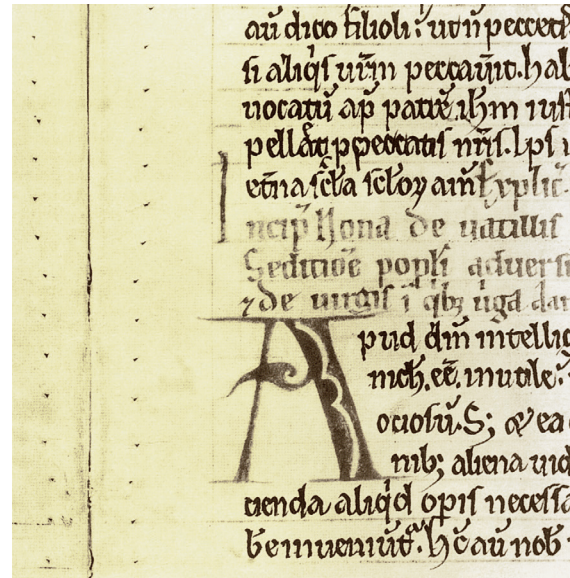 aū dico filioli. ut ñ peccetis
si aliqͥs urm̄ peccau̇it. hab
uocatū ap̄ patrē ihm̄ iust
peccatis nrīs. Ips
et̄na scl̄a scl̄oꝝ am̄ Explic̄
Incip̄ Nona de uatillis
Seditiōe popl̄i aduersu
⁊ de uirgis ī qͥbꝫ uͥga
Apud dn̄m intellig
nich. eē. inutile.
ociosū. S; ⁊ ea
nib; aliena uid
cienda aliqͥd opis necessa
inueniūt. H̄ aū nob